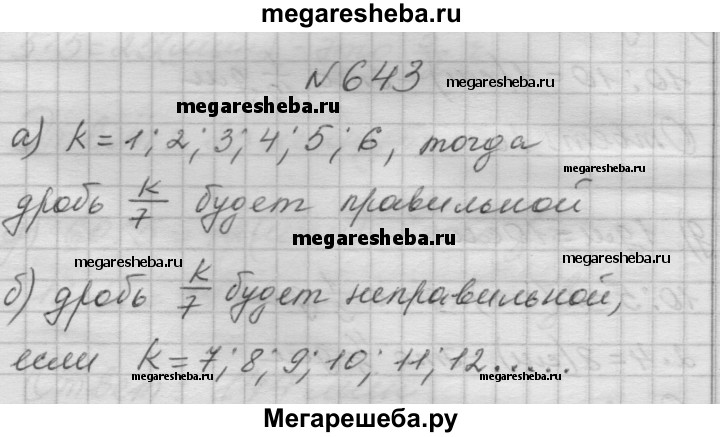 megaresheba.ru
N 643
megaresheba.ru
megaresheba.ru
а) k = 1; 2; 3; 4; 5; 6, тогда
megaresheba.ru
дробь k/7 будет правильной
megaresheba.ru
megaresheba.ru
megaresheba.ru
б) дробь k/7 будет неправильной,
если k = 7; 8; 9; 10; 11; 12......
Мегарешеба.ру